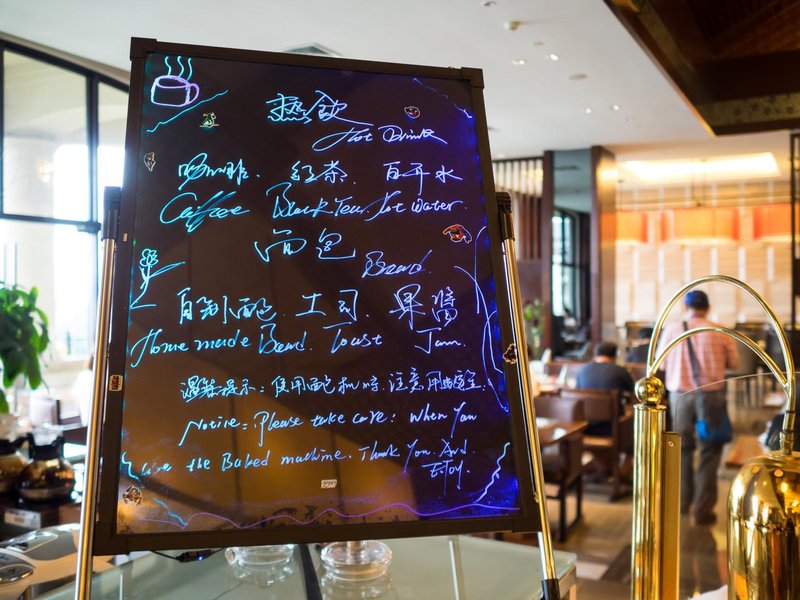 热飲
Hot Drinks
咖啡. 红茶. 百开水
Caffee Black Tea. Hot water.
面包
Bead.
自制包. 土司. 果醬
Home made Bead. Toast Jam.
温馨提示: 使用包机时. 注意用电安全.
Notire: Please take care: When You
use the Baked machine. Thank You. And
EnJoy.